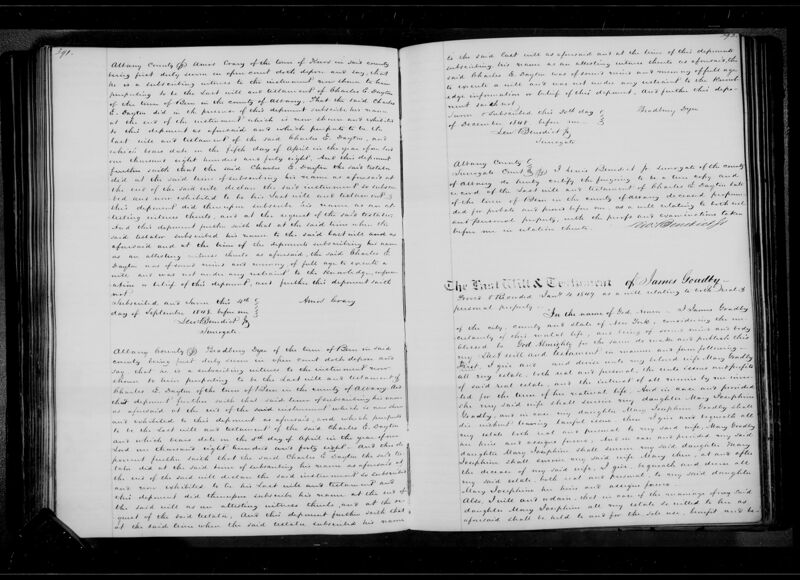 391.
Albany County (ss) Amos Crary of the town of Knox in said county
being first duly sworn in open court doth depose and say, that
he is a subscribing witness to the instrument now shown to him
purporting to be the last will and testament of Charles E. Dayton
of the town of Bern in the county of Albany. That the said Charles
E. Dayton did in the presence of this deponent subscribe his name
at the end of the instrument which is now shown and exhibited
to this deponent as aforesaid and which purports to be the
last will and testament of the said Charles E. Dayton, and
which bears date on the fifth day of April in the year of our lord
one thousand eight hundred and forty eight. And this deponent
further saith that the said Charles E. Dayton the said testator
did at the said time of subscribing his name as aforesaid at
the end of the said will declare the said instrument so subscri-
bed and now exhibited to be his last will and testament &
this deponent did thereupon subscribe his name as an at-
testing witness thereto, and at the request of the said testator.
And this deponent further saith that at the said time when the
said testator subscribed his name to the said last will and as
aforesaid and at the time of the deponents subscribing his name
as an attesting witness thereto as aforesaid, the said Charles E.
Dayton was of sound mind and memory of full age to execute a
will and was not under any restraint to the knowledge, infor-
mation or belief of this deponent, and further this deponent saith
not.
Subscribed and sworn this 11th
day of September 1848 before me
Amos Crary
Lewis Benedict Jr
Surrogate
Albany County (ss) Bradbury Dyer of the town of Bern in said
county being first duly sworn in open court doth depose and
say that he is a subscribing witness to the instrument now
shown to him purporting to be the last will and testament of
Charles E. Dayton of the town of Bern in the county of Albany. And
this deponent further saith that said time of subscribing his name
as aforesaid at the end of the said instrument which is now shown
and exhibited to this deponent as aforesaid, and which purports
to be the last will and testament of the said Charles E. Dayton
and which bears date on the 5th day of April in the year of our
Lord one thousand eight hundred and forty eight. And this de-
ponent further saith that the said Charles E. Dayton the said tes-
tator did at the said time of subscribing his name as aforesaid at
the end of the said will declare the said instrument so subscribed
and now exhibited to be his last will and testament and
this deponent did thereupon subscribe his name at the end of
the said will as an attesting witness thereto, and at the re-
quest of the said testator. And this deponent further saith that
at the said time when the said testator subscribed his name
to the said last will as aforesaid and at the time of this deponents
subscribing his name as an attesting witness thereto as aforesaid, the
said Charles E. Dayton was of sound mind and memory of full age
to execute a will and was not under any restraint to the knowl-
edge information or belief of this deponent. And further this depo-
nent saith not.
Sworn & Subscribed this 30th day
of December 1848 before me
Bradbury Dyer
Lewis Benedict Jr
Surrogate
Albany County
Surrogate Court (ss) I Lewis Benedict Jr Surrogate of the county
of Albany do hereby certify the foregoing to be a true copy and
record of the last will and testament of Charles E. Dayton late
of the town of Bern in the county of Albany deceased proven
ded for probate and proved before me, as a will relating to both real
and personal property, with the proofs and examinations taken
before me in relation thereto.
Lewis Benedict Jr
The Last Will & Testament of James Goadby
Proved & Recorded Jany 4 1849 as a will relating to both Real &
personal property.
In the name of God, Amen. I James Goadby
of the city, county and state of New York, considering the un-
certainty of this mortal life, and being of sound mind and body
blessed be God Almighty for the same do make and publish this
my last will and testament in manner and form following.
First, I give and devise unto my beloved wife Mary Goadby
all my estate, both real and personal, the rents issues and profits
of said real estate, and the interest of all monies by me inves-
ted for the term of her natural life. And in case and provided
she my said wife shall survive my daughter Mary Josephine
Goadby, and in case my daughter Mary Josephine Goadby shall
die without leaving lawful issue, then I give and bequeath all
my estate both real and personal to my said wife, Mary Goadby
her heirs and assigns forever. And in case and provided my said
daughter Mary Josephine shall survive my said daughter Mary
Josephine shall survive my said wife Mary then, at and after
the decease of my said wife, I give, bequeath and devise all
my said estate, both real and personal to my said daughter
Mary Josephine her heirs and assigns forever.
Also, I will and ordain, that in case of the marriage of my said
daughter Mary Josephine all my estate so willed to her as
aforesaid shall be held to and for the sole use, benefit and be-